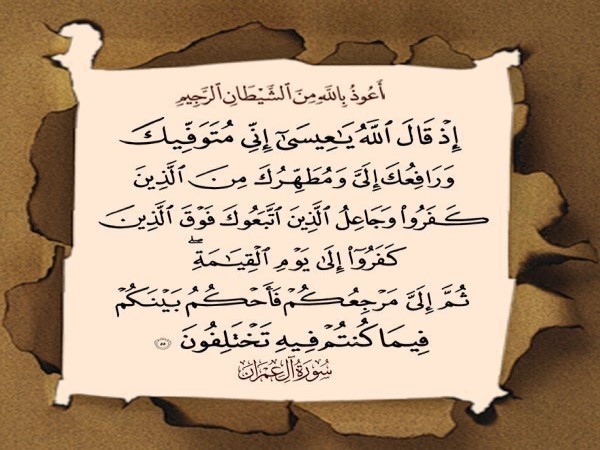 أَعُوذُ بِٱللَّهِ مِنَ ٱلشَّيْطَانِ ٱلرَّجِيمِ
إِذْ قَالَ ٱللَّهُ يَـٰعِيسَىٰٓ إِنِّى مُتَوَفِّيكَ
وَرَافِعُكَ إِلَىَّ وَمُطَهِّرُكَ مِنَ ٱلَّذِينَ
كَفَرُوا۟ وَجَاعِلُ ٱلَّذِينَ ٱتَّبَعُوكَ فَوْقَ ٱلَّذِينَ
كَفَرُوٓا۟ إِلَىٰ يَوْمِ ٱلْقِيَـٰمَةِ ۖ
ثُمَّ إِلَىَّ مَرْجِعُكُمْ فَأَحْكُمُ بَيْنَكُمْ
فِيمَا كُنتُمْ فِيهِ تَخْتَلِفُونَ ٥٥
سُورَةُ آلِ عِمْرَان